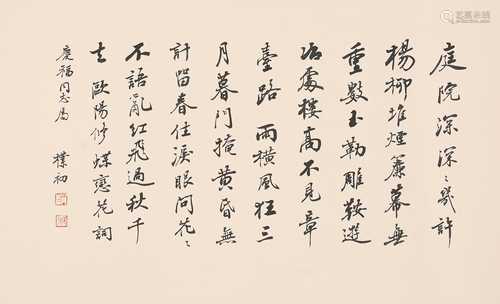 庭院深深〻幾許
楊柳堆煙簾幕無
重數玉勒雕鞍遊
冶處樓高不見章
臺路雨橫風狂三
月暮門掩黃昏無
計留春住淚眼問花〻
不語亂紅飛過秋千
去 歐陽修蝶戀花詞
慶福同志屬 樸初